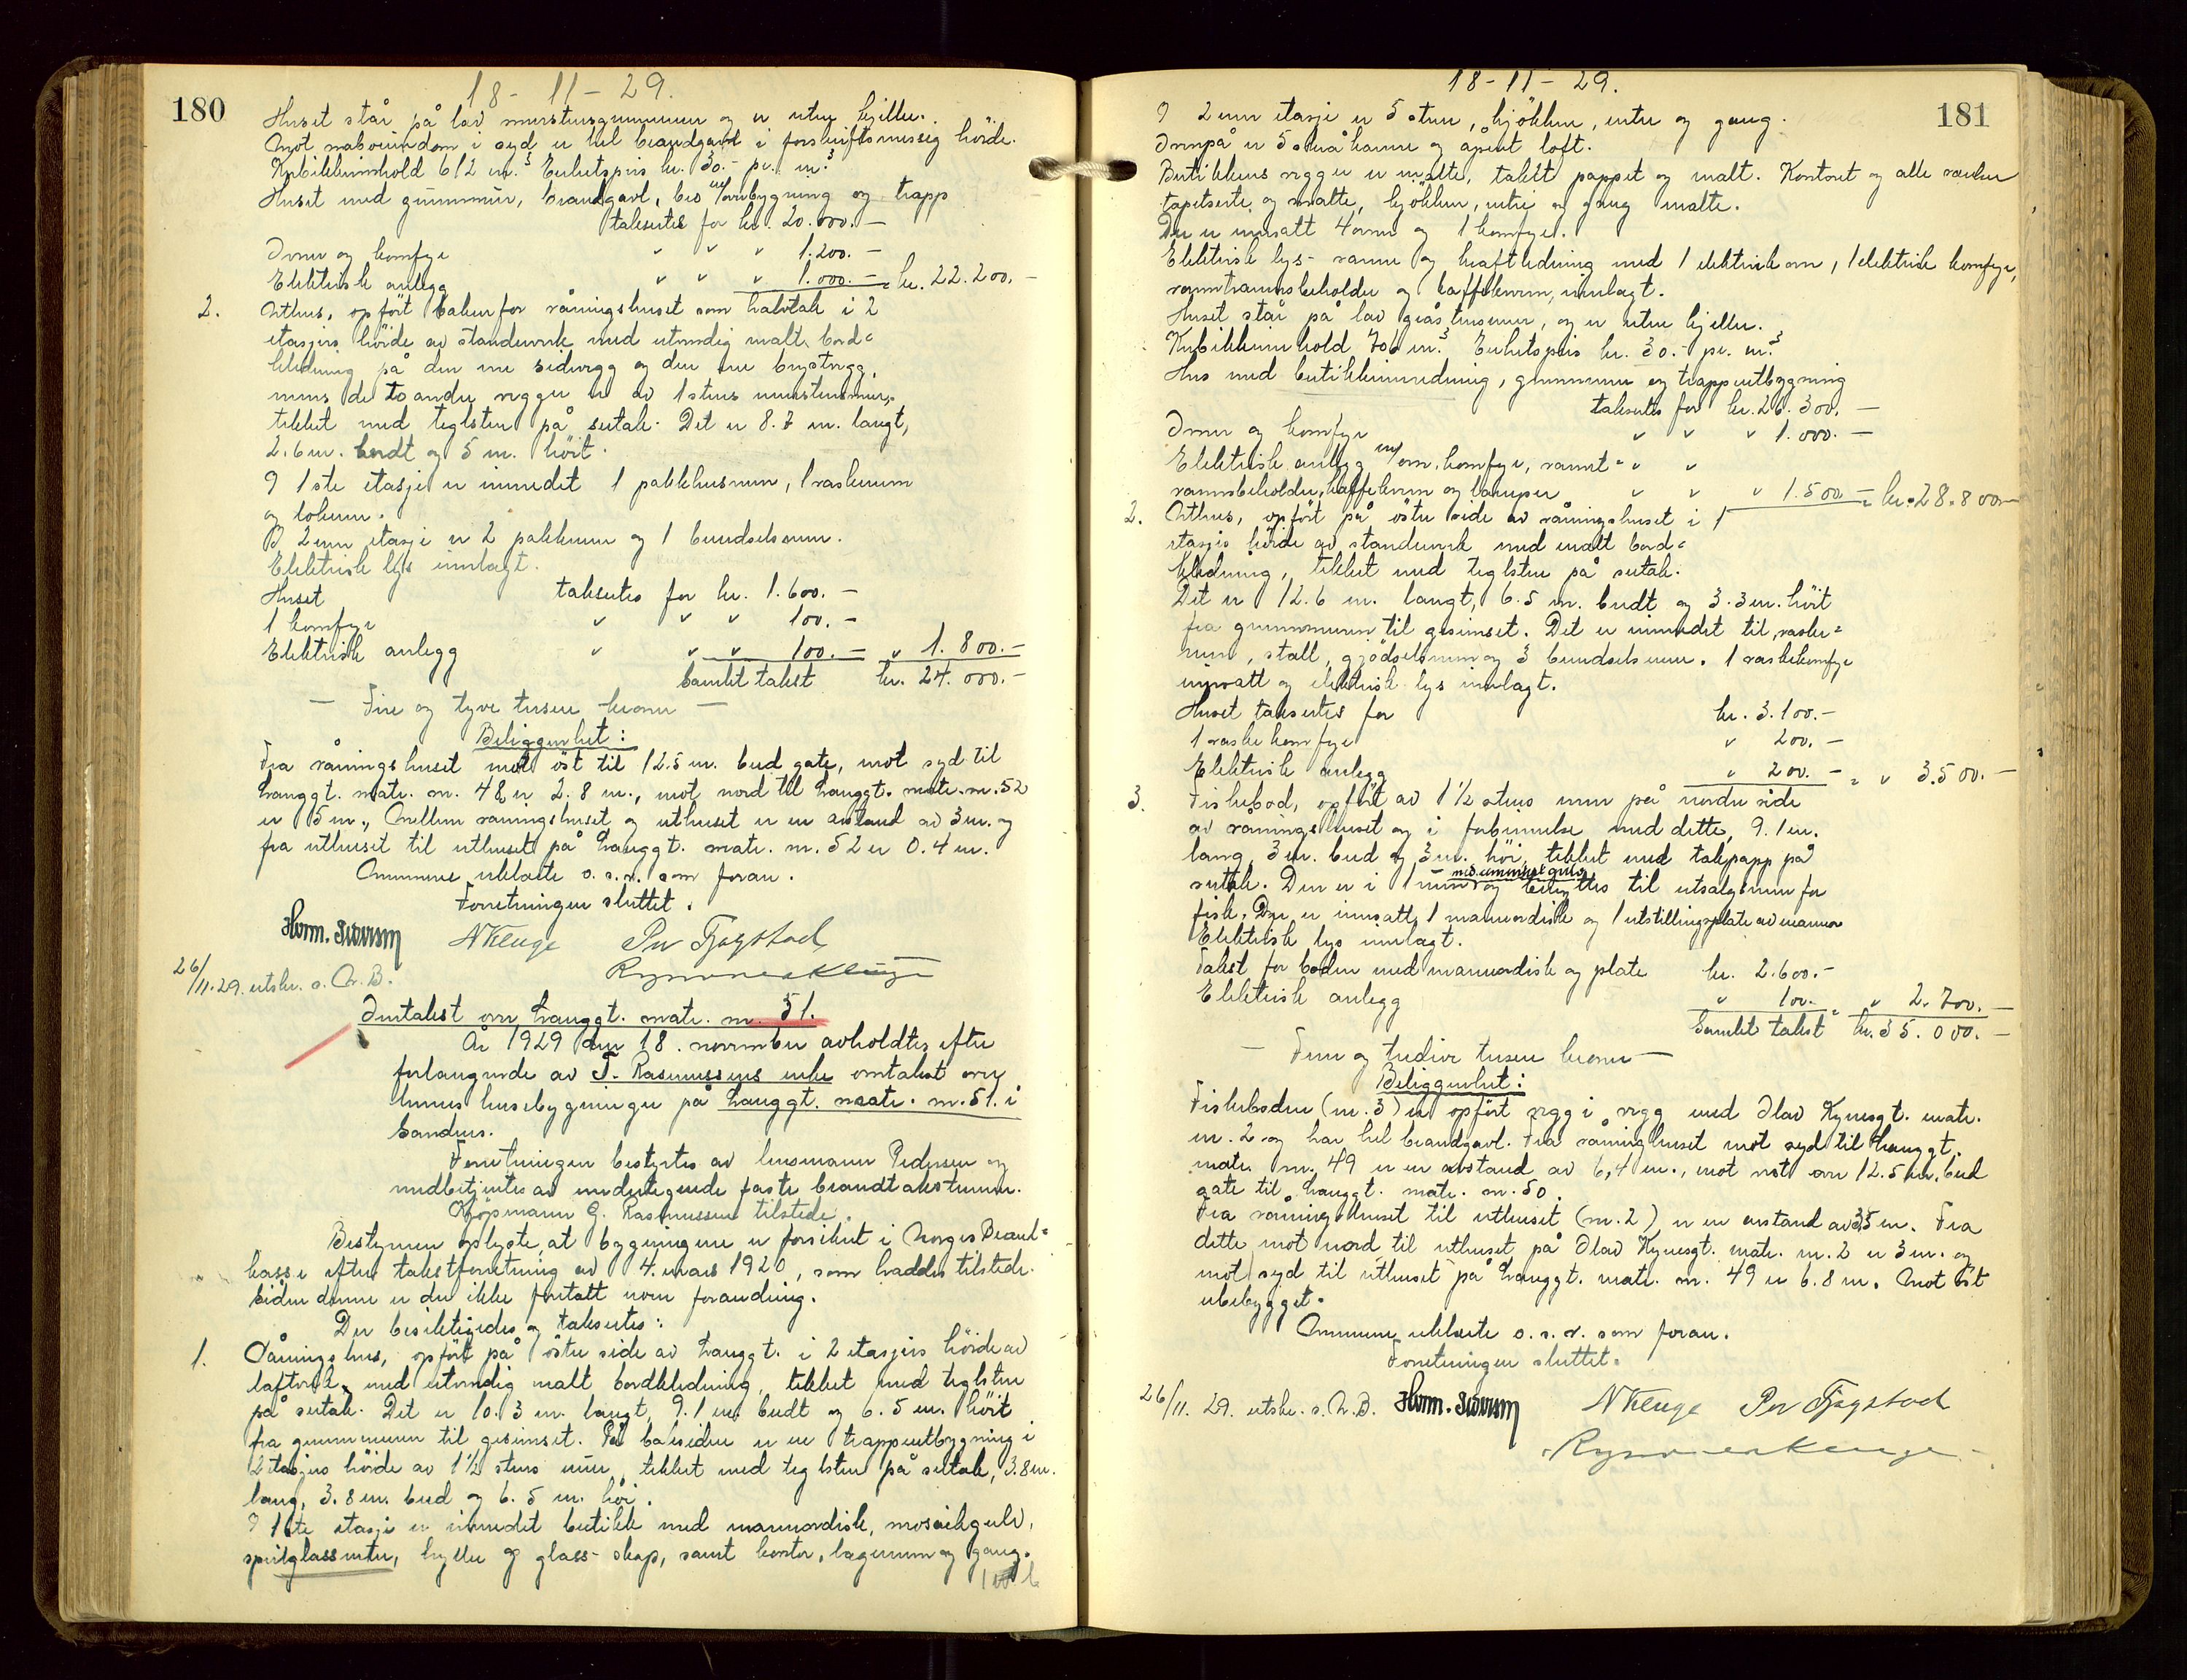 180
18 - 11 - 29.
Huset står på lav murstensgrunnmur og er uten kjeller.
Mot naboeiendom i syd er hel brandgavl i forskriftsmessig höide.
Kubikkinnhold 612 m.³ Enhetspris kr. 30.- pr. m.³
Huset med grunnmur, brandgavl, bis m/ overbygning og trapp
takseres for kr. 20.000.-
Ovner og komfyr " " " 1.200.-
Elektrisk anlegg " " " 1.000.- = kr. 22.200.-
2. Uthus, opfört bakenfor våningshuset som halvtak i 2
etasjers höide av standerverk med utvendig malt bord=
kledning på den ene sidevegg og den ene brystvegg,
mens de to andre vegger er av 1 stens murstensmur,
tekket med teglsten på sutak. Det er 8.7 m. langt,
2.6 m. bredt og 5 m. höit.
I 1ste etasje er innredet 1 pakkhusrum, 1 vaskerum
og lokum.
I 2nen etasje er 2 pakkrum og 1 brendselsrum.
Elektrisk lys innlagt.
Huset takseres for kr. 1.600.-
1 komfyr " " " 100.-
Elektrisk anlegg " " " 100.- " 1.800.-
Samlet takst kr. 24.000.-
— Fire og tyve tusen kroner —
Beliggenhet:
Fra våningshuset mot öst til 12.5 m. bred gate, mot syd til
Langgt. matr. nr. 48 er 2.8 m., mot nord til Langgt. matr. nr. 52
er 5 m., Mellem våningshuset og uthuset er en avstand av 3 m. og
fra uthuset til uthuset på Langgt. matr. nr. 52 er 0.4 m.
Omennene erklærte o.s.v. som foran.
Forretningen sluttet.
Henn. Sivertsen N Kluge Per Tjogstad
26/11.29. utskr. s. N. B.
Omtakst over Langgt. matr. nr. 51.
År 1929 den 18. november avholdtes efter
forlangende av T. Rasmussens enke omtakst over
hennes husebygninger på Langgt. matr. nr. 51. i
Sandnes.
Forretningen bestyrtes av lensmann Pedersen og
medbetjentes av undertegnede faste brandtakstmenn.
Kjöpmann G. Rasmussen tilstede.
Bestyreren oplyste, at bygningene er forsikret i Norges Brand=
kasse efter takstforretning av 4. mars 1920, som haddes tilstede.
Siden denne er der ikke foretatt noen forandring.
Der besiktigedes og takseres:
1. Våningshus, opfört på östre side av Langgt. i 2 etasjers höide av
laftverk, med utvendig malt bordkledning, tekket med teglsten
på sutak. Det er 10.3 m. langt, 9.1 m. bredt og 6.5 m. höit
fra grunnmuren til gesimset. På baksiden er en trappeutbygning i
2 etasjers höide av 1½ stens mur, tekket med teglsten på sutak, 3.8 m.
lang, 3.8 m. bred og 6.5 m. höi.
I 1ste etasje er innredet butikk med marmordisk, mosaikgulv,
speilglassruter, hyller og glass-skap, samt kontor, lagerrum og gang.
181
18 - 11 - 29.
I 2nen etasje er 5 stuer, kjökken, entre og gang.
Ovenpå er 5 små kamre og åpent loft.
Butikkens vegger er malte, taket pappet og malt. Kontoret og alle værelser
tapetserte og malte, kjökken, entre og gang malte.
Der er innsatt 4 ovner og 1 komfyr.
Elektrisk lys- varme og kraftledning med 1 elektrisk ovn, 1 elektrisk komfyr,
varmtvannsbeholder og kaffekvern, innlagt.
Huset står på lav gråstensmur, og er uten kjeller.
Kubikkinnhold 706 m.³ Enhetspris kr. 30.- pr. m.³
Hus med butikkinnredning, grunnmur og trappeutbygning
takseres for kr. 26.300.-
Ovner og komfyr " " " 1.000.-
Elektrisk anlegg m/ ovn, komfyr, varmt= " "
vannsbeholder, kaffekvern og lamper " " " 1.500.- = kr. 28.800.-
2. Uthus, opfört på östre side av våningshuset i 1
etasjes höide av standerverk med malt bord=
kledning, tekket med teglsten på sutak.
Det er 12.6 m. langt, 6.5 m. bredt og 3.3 m. höit
fra grunnmuren til gesimset. Det er innredet til vaske=
rum, stall, gjödselsrum og 3 brendselsrum. 1 vaskekomfyr
innsatt og elektrisk lys innlagt.
Huset takseres for kr. 3.100.-
1 vaskekomfyr " 200.-
Elektrisk anlegg " 200.- = " 3.500.-
3. Fiskebod, opfört av 1½ stens mur på nordre side
av våningshuset og i forbinnelse med dette, 9.1 m.
lang, 3 m. bred og 3 m. höi, tekket med takpapp på
sutak. Den er i 1 rum med cementert gulv og benyttes til utsalgsrum for
fisk. Der er innsatt 1 marmordisk og 1 utstillingsplate av marmor
Elektrisk lys innlagt.
Takst for boden med marmordisk og plate kr. 2.600.-
Elektrisk anlegg " 100.- = " 2.700.-
Samlet takst kr. 35.000.-
— Fem og tredive tusen kroner —
Beliggenhet:
Fiskeboden (nr. 3) er opfört vegg i vegg med Olav Kyrresgt. matr.
nr. 2 og har hel brandgavl. Fra våninghuset mot syd til Langgt.
matr. nr. 49 er en avstand av 6,4 m., mot vest over 12.5 m. bred
gate til Langgt. matr. nr. 50.
Fra våninghuset til uthuset (nr. 2) er en avstand av 3.5 m. Fra
dette mot nord til uthuset på Olav Kyrresgt. matr. nr. 2 er 3 m. og
mot syd til uthuset på Langgt. matr. nr. 49 er 6.8 m. Mot öst
ubebygget.
Omennene erklærte o.s.v. som foran.
Forretningen sluttet.
26/11. 29. utskr. s. N. B. Henn. Sivertsen N Kluge Per Tjogstad